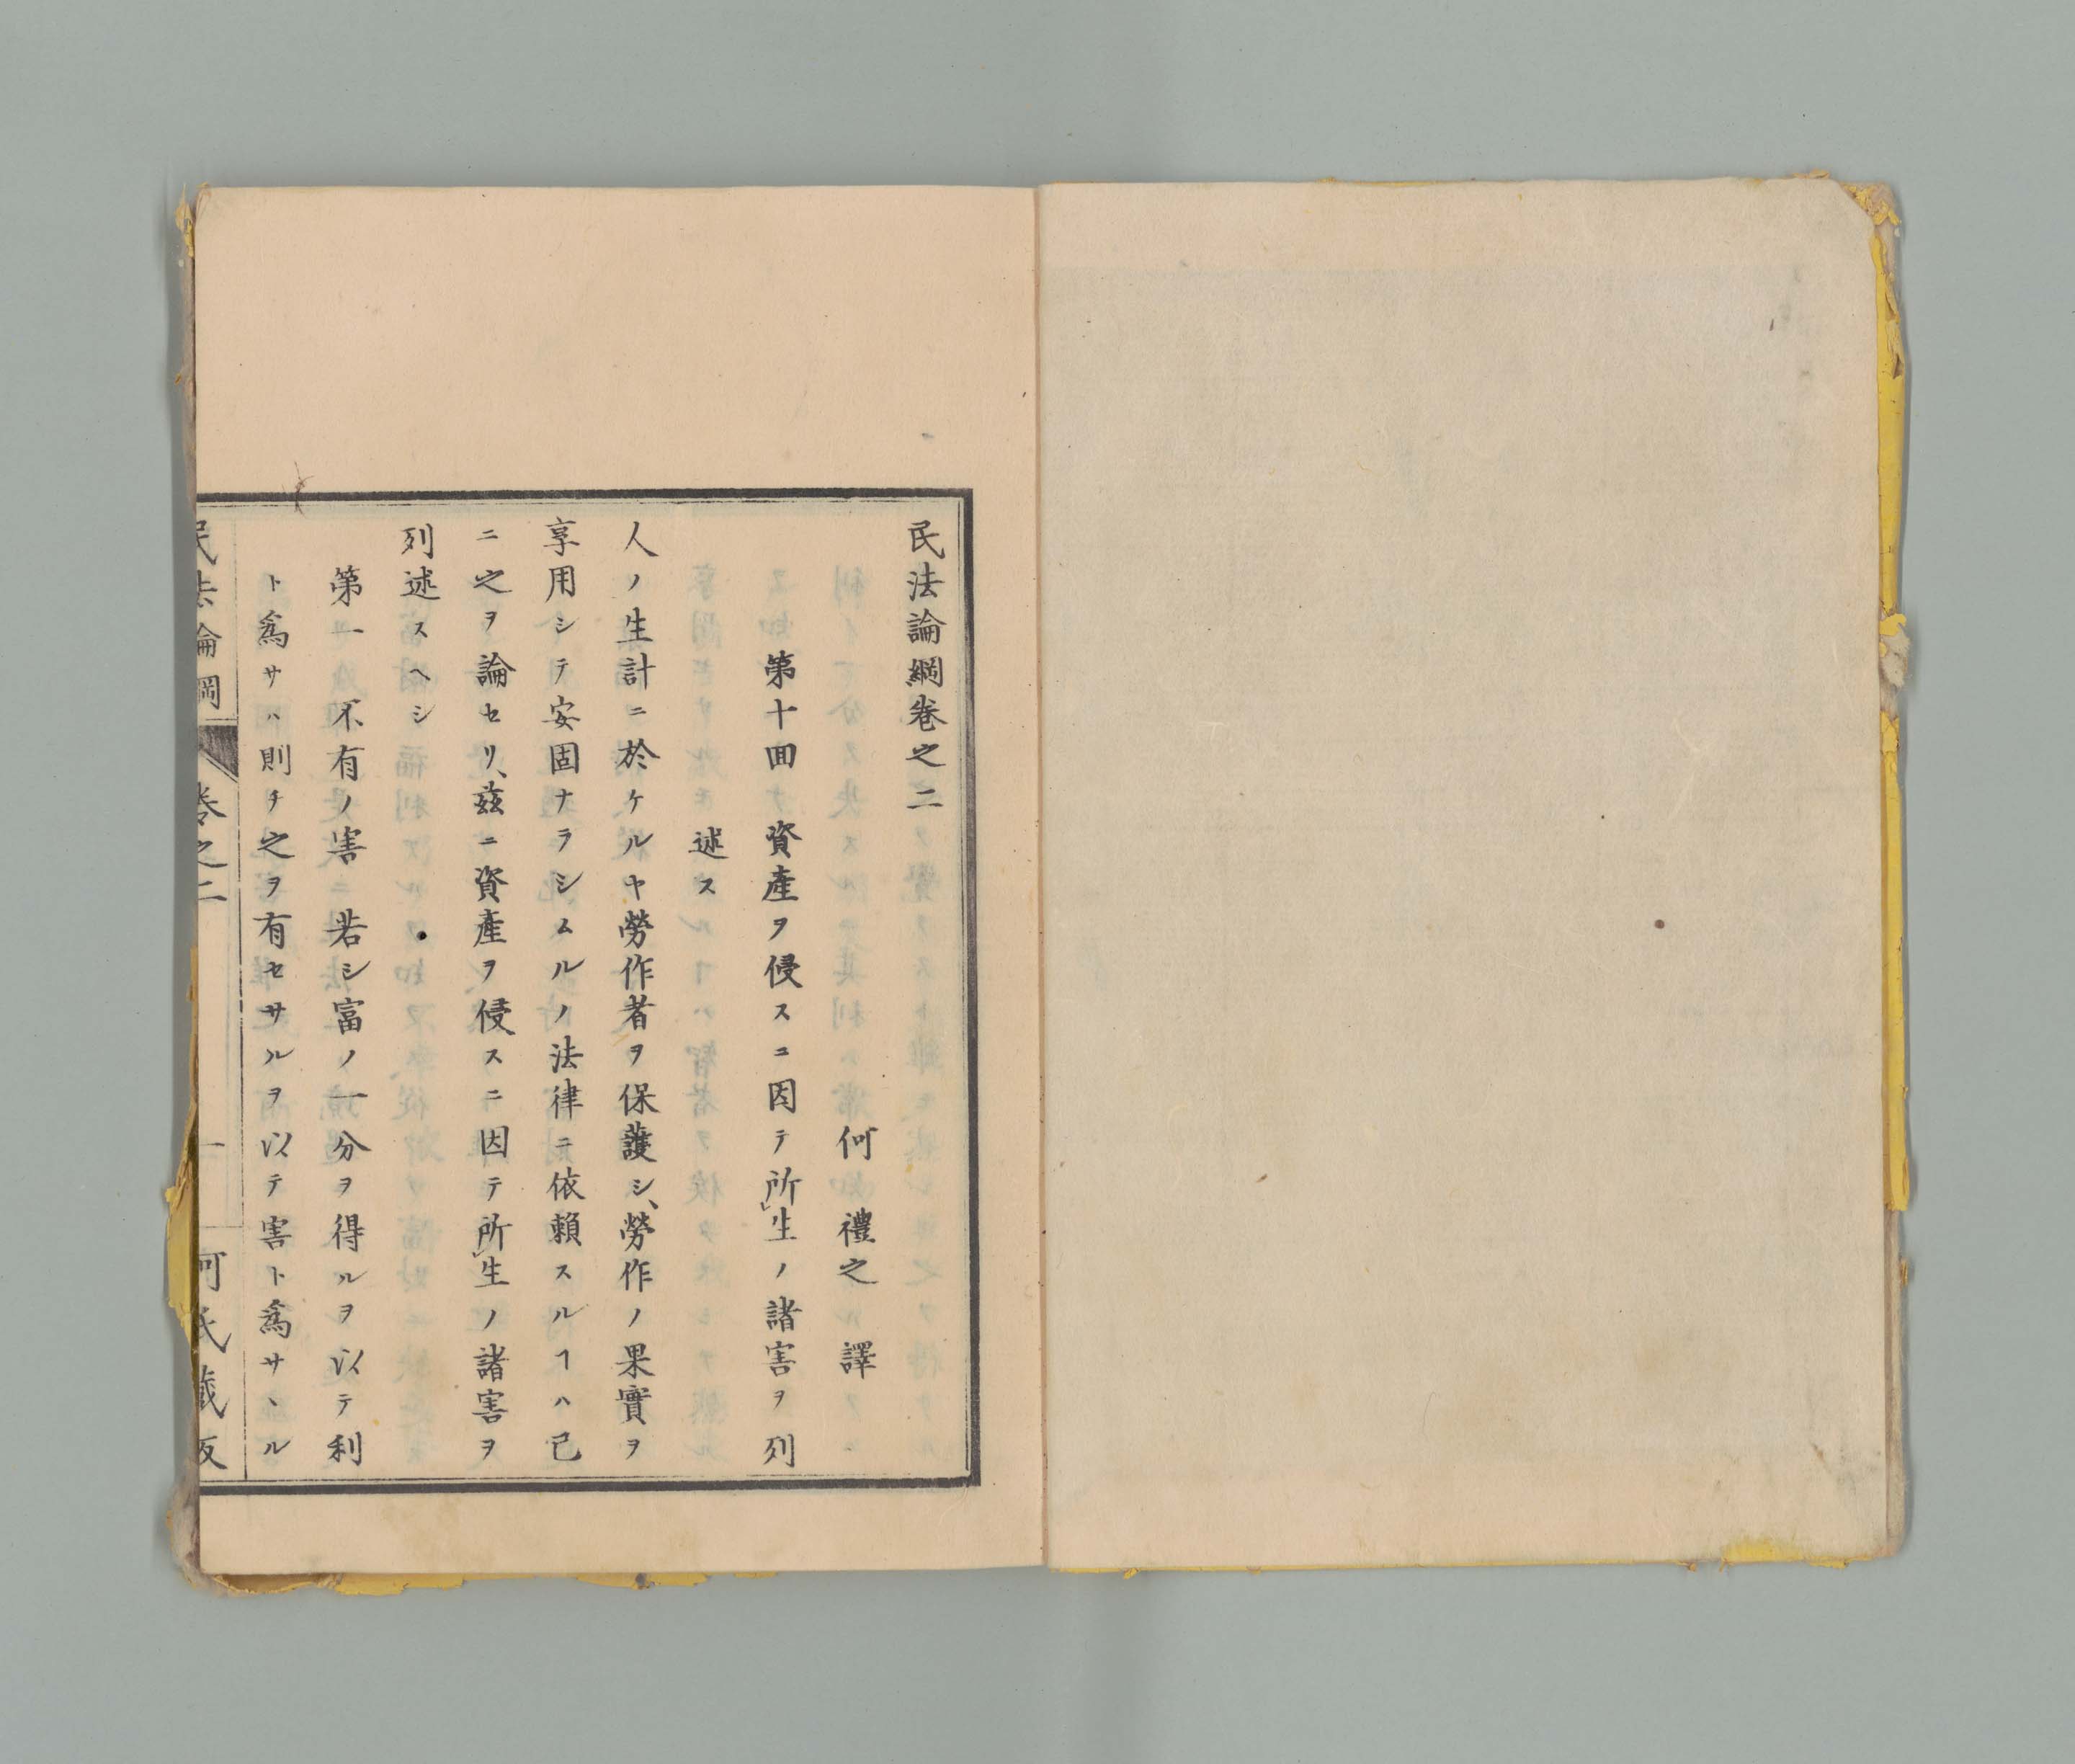 民法論綱卷之二
何禮之 譯
第十回 資産ヲ侵スニ因テ所生ノ諸害ヲ列
述ス
人ノ生計ニ於ケルヤ勞作者ヲ保護シ、勞作ノ果實ヲ
享用シテ安固ナラシムルノ法律ニ依頼スルヿハ已
ニ之ヲ論セリ、茲ニ資産ヲ侵スニ因テ所生ノ諸害ヲ
列述スヘシ
第一 不有ノ害 若シ富ノ一分ヲ得ルヲ以テ利
ト爲サハ則チ之ヲ有セサルヲ以テ害ト爲サヽル
民法論綱 卷之二 一 何氏藏版